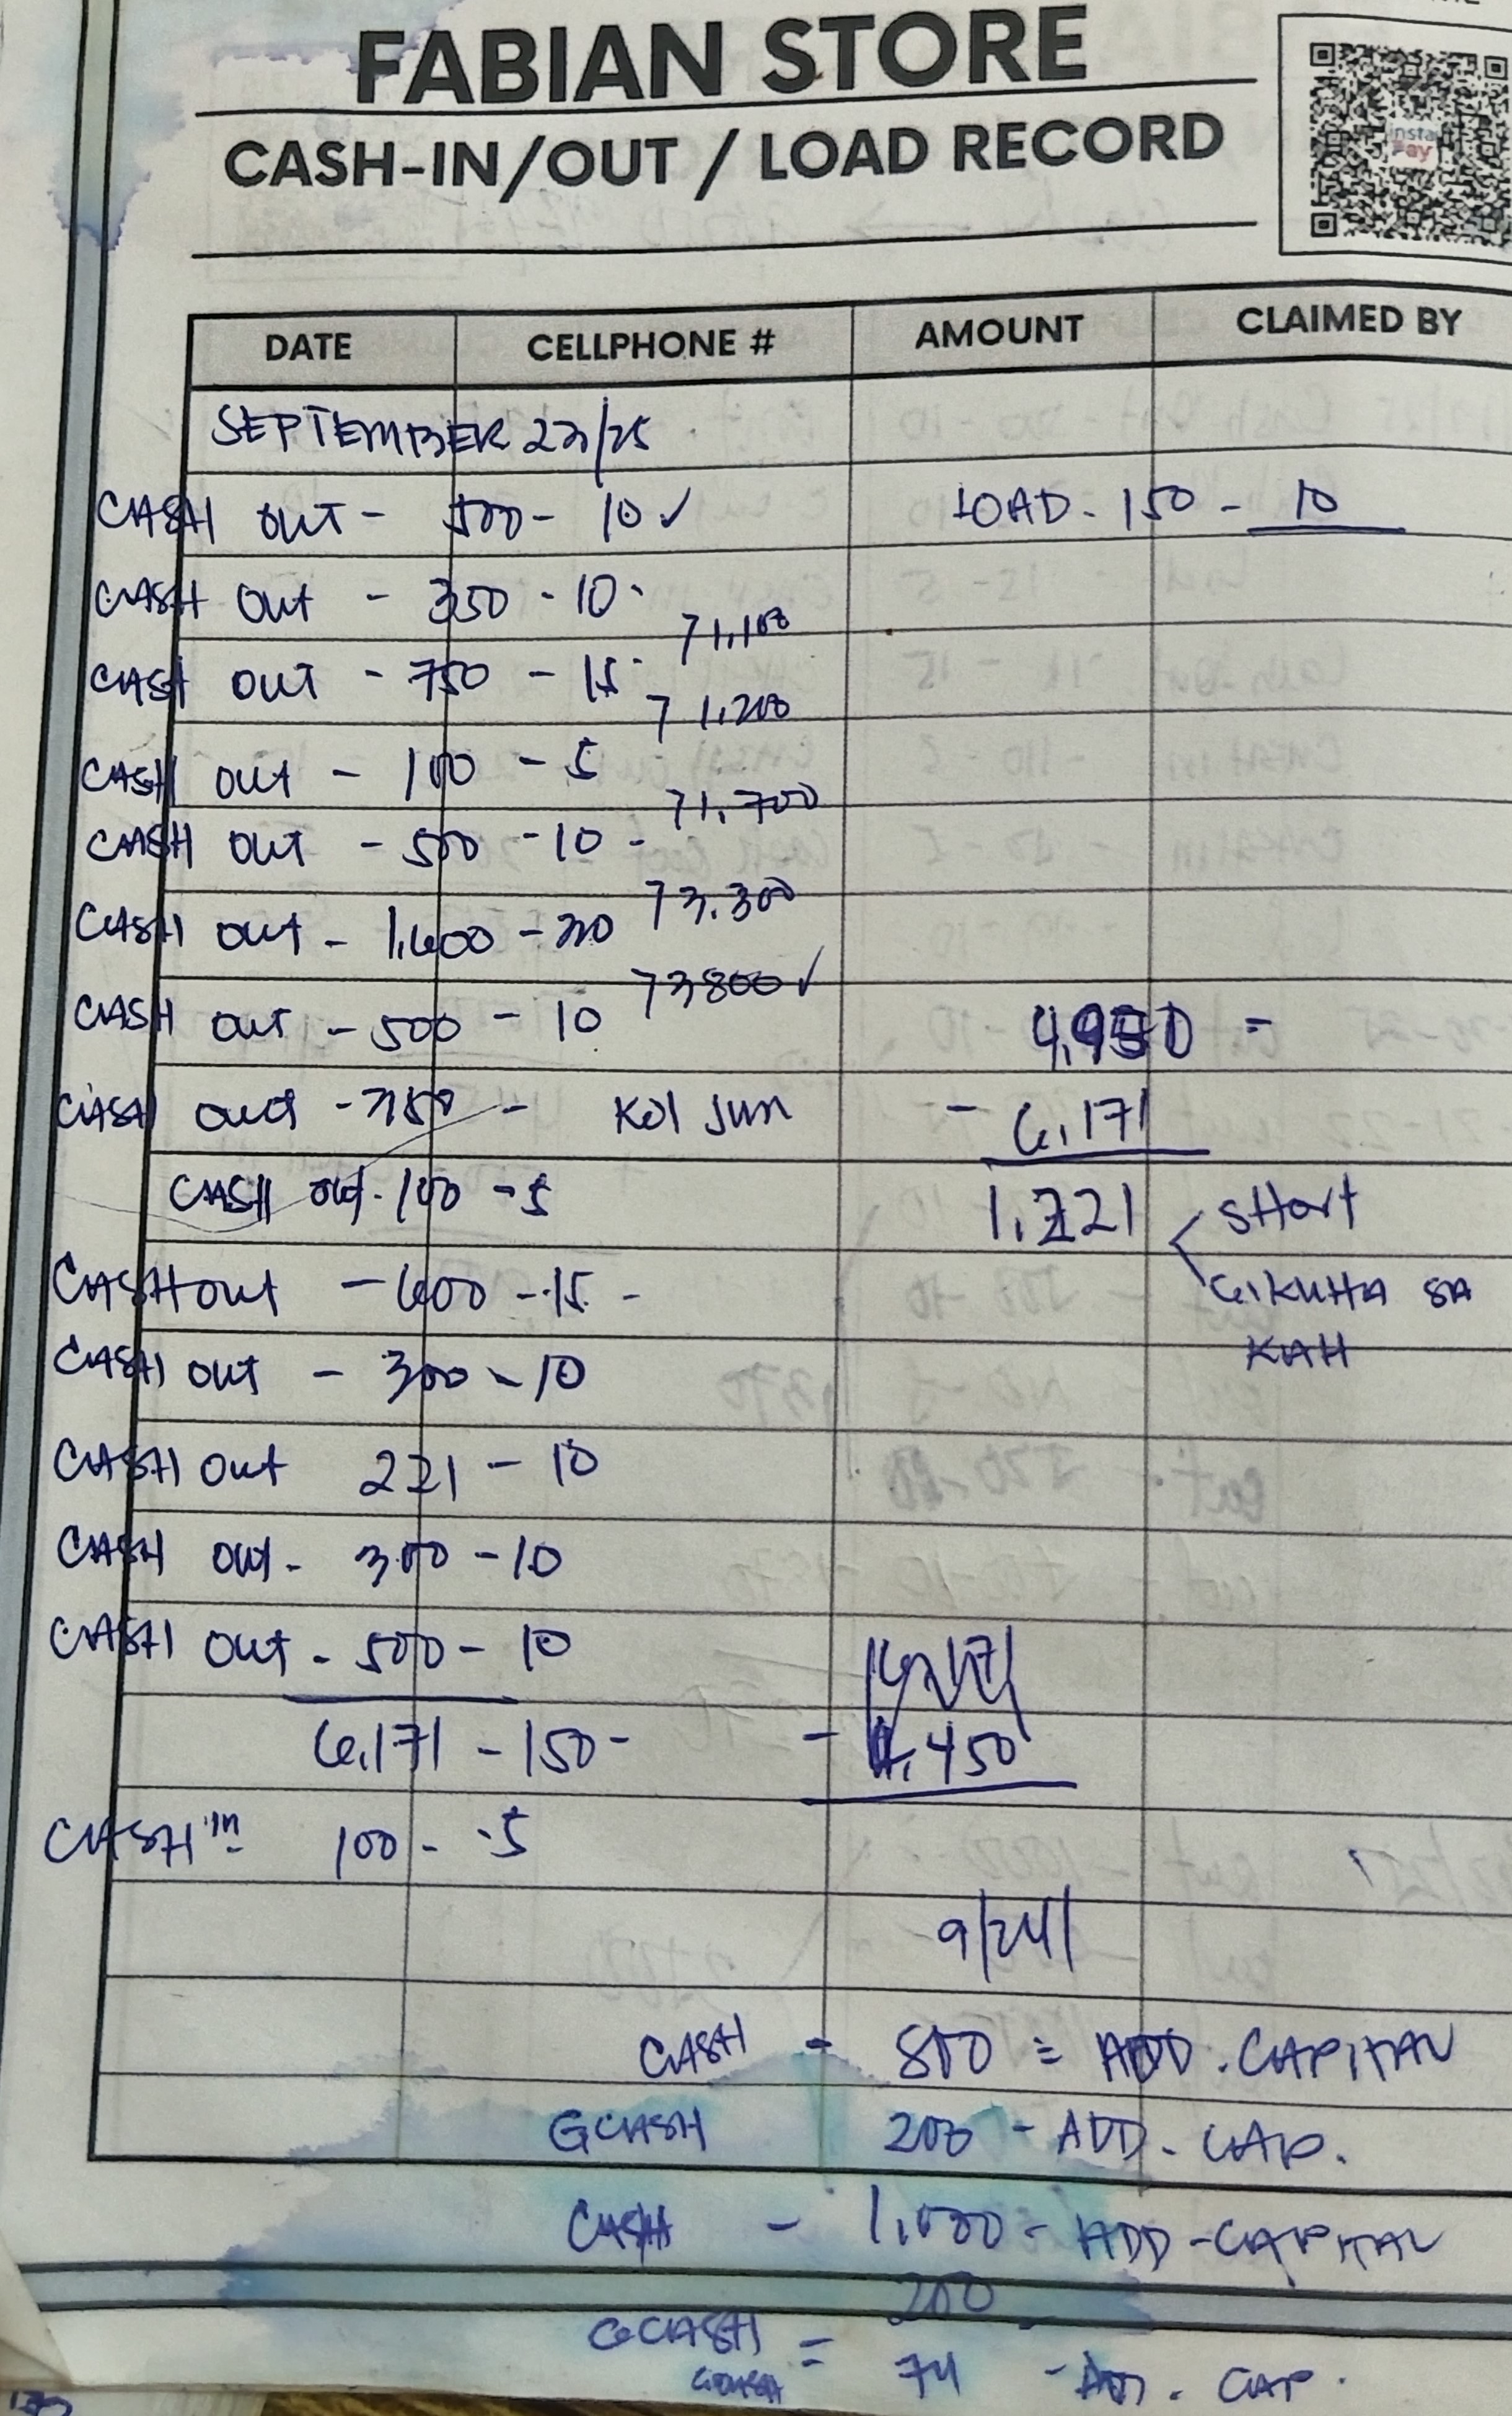 FABIAN STORE
CASH-IN/OUT / LOAD RECORD
Insta Pay
DATE CELLPHONE # AMOUNT CLAIMED BY
SEPTEMBER 23/25
CASH OUT - 500 - 10 ✓ LOAD - 150 - 10
CASH OUT - 350 - 10
71,100
CASH OUT - 750 - 15
71,200
CASH OUT - 100 - 5
71,700
CASH OUT - 500 - 10 -
73,300
CASH OUT - 1,600 - 30
73800 ✓
CASH OUT - 500 - 10 4,950 =
CASH OUT - 750 - Kol Jun - 6,171
CASH OUT - 100 - 5 1,221 < SHORT
CASH OUT - 600 - 15 - GIKUHA SA
KAH
CASH OUT - 300 - 10
CASH OUT 221 - 10
CASH OUT - 300 - 10
CASH OUT - 500 - 10
6,171 - 150 - - 4,450
CASH in - 100 - 5
9/24/
CASH - 800 = ADD. CAPITAL
GCASH 200 - ADD. CAP.
CASH - 1,000 - ADD - CAPITAL
200
GCASH =
GCASH 74 - ADD. CAP.